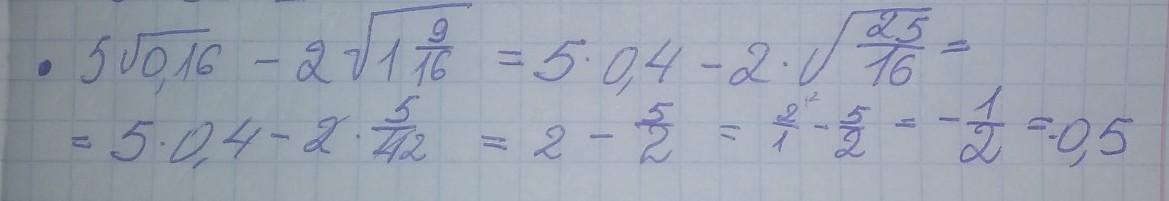 • 5√0,16 − 2√1 9/16 = 5·0,4 − 2·√25/16 =
= 5·0,4 − 2·5/42 = 2 − 5/2 = 2/1 ² − 5/2 = −1/2 = -0,5